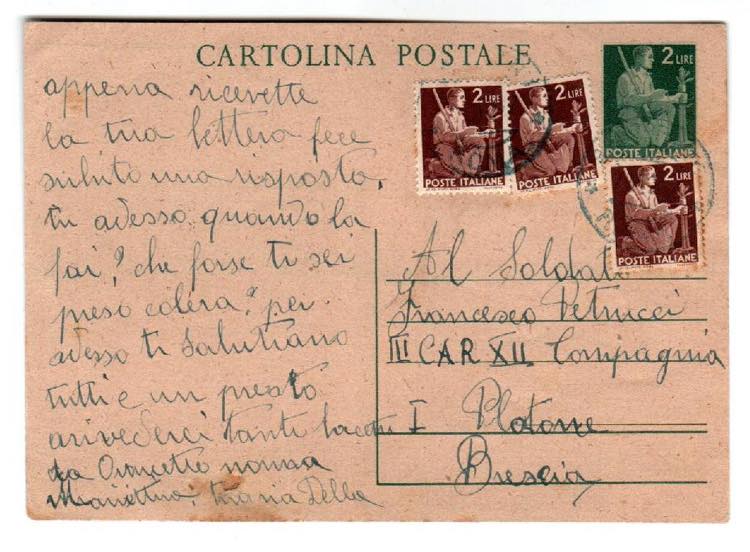 CARTOLINA POSTALE
2 LIRE
POSTE ITALIANE
2 LIRE
POSTE ITALIANE
2 LIRE
POSTE ITALIANE
2 LIRE
POSTE ITALIANE
appena ricevette
la tua lettera fece
subito una risposta,
tu adesso quando la
fai? che forse ti sei
preso colera? per
adesso ti salutiano
tutti e un presto
arivederci tanti
da nonna
Al Soldat
Francesco Petrucci
III CAR XII Compagnia
I Plotone
Brescia